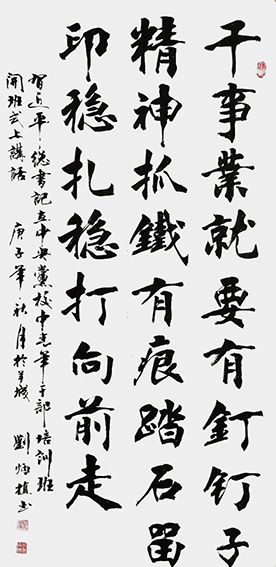 干事業就要有釘釘子
精神抓鐵有痕踏石留
印穩扎穩打向前走
習近平總書記在中央黨校中青年干部培訓班
開班式上講話 庚子年秋月於羊城 劉炳植书